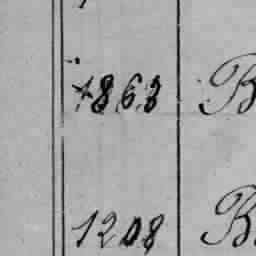 1863 B
1208 B